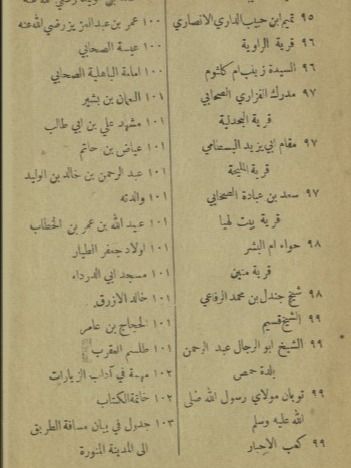 ٩٥ تميم ابن حبيب الداري الانصاري
٩٦ قرية الراوية
٩٦ السيدة زينب ام كلثوم
٩٧ مدرك الفزاري الصحابي
قرية المجدلية
٩٧ مقام ابي يزيد البسطامي
قرية المليحة
٩٧ سعد بن عبادة الصحابي
قرية بيت لهيا
٩٨ حواء ام البشر
قرية منين
٩٨ شيخ جندل بن محمد الرفاعي
٩٩ الشيخ قسيم
٩٩ الشيخ ابو الرجال عبد الرحمن
بلدة حمص
٩٩ ثوبان مولاي رسول الله صلى
الله عليه وسلم
٩٩ كعب الاحبار
١٠٠ عمر بن عبد العزيز رضي الله عنه
١٠٠ عبسة الصحابي
١٠٠ امامة الباهلية الصحابي
١٠١ النعمان بن بشير
١٠١ مشهد علي بن ابي طالب
١٠١ عياض بن حاتم
١٠١ عبد الرحمن بن خالد بن الوليد
١٠١ والدته
١٠١ عبد الله بن عمر بن الخطاب
١٠١ اولاد جعفر الطيار
١٠١ مسجد ابي الدرداء
١٠١ خالد الازرق
١٠١ الحجاج بن عامر
١٠١ طلسم العقرب
١٠٢ مهمة في آداب الزيارات
١٠٢ خاتمة الكتاب
١٠٣ جدول في بيان مسافة الطريق
الى المدينة المنورة